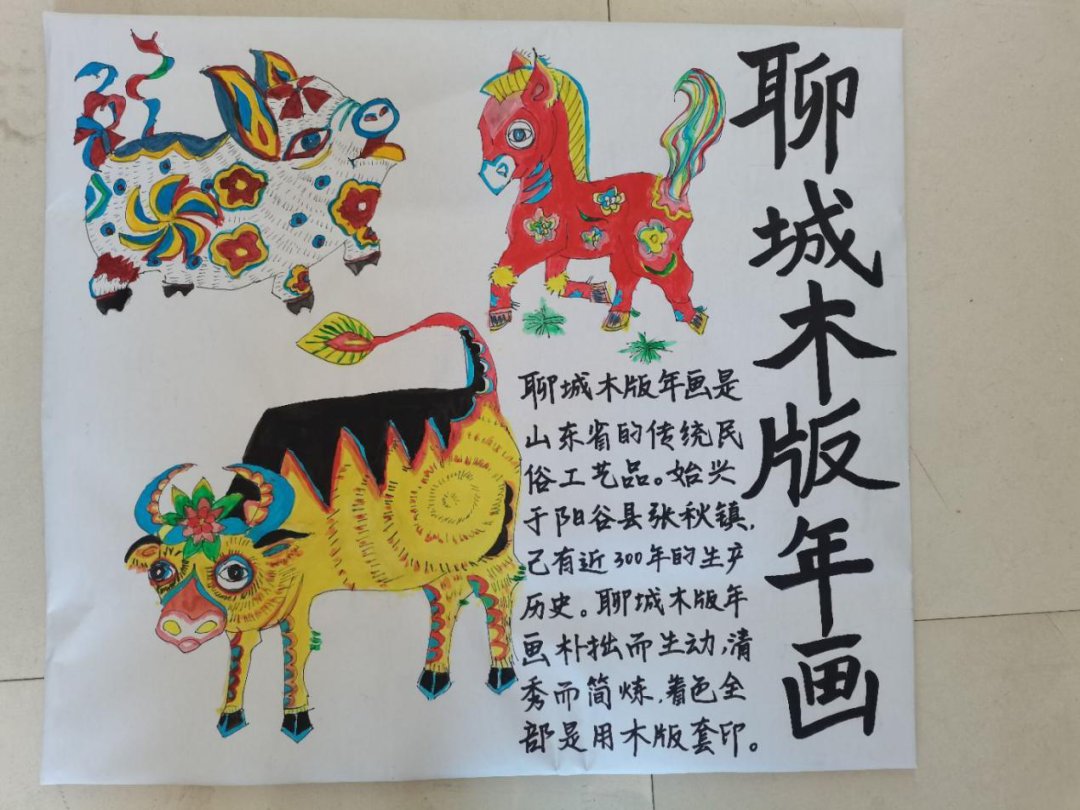 聊城木版年画
聊城木版年画是
山东省的传统民
俗工艺品。始兴
于阳谷县张秋镇，
己有近300年的生产
历史。聊城木版年
画朴拙而生动，清
秀而简炼，着色全
部是用木版套印。